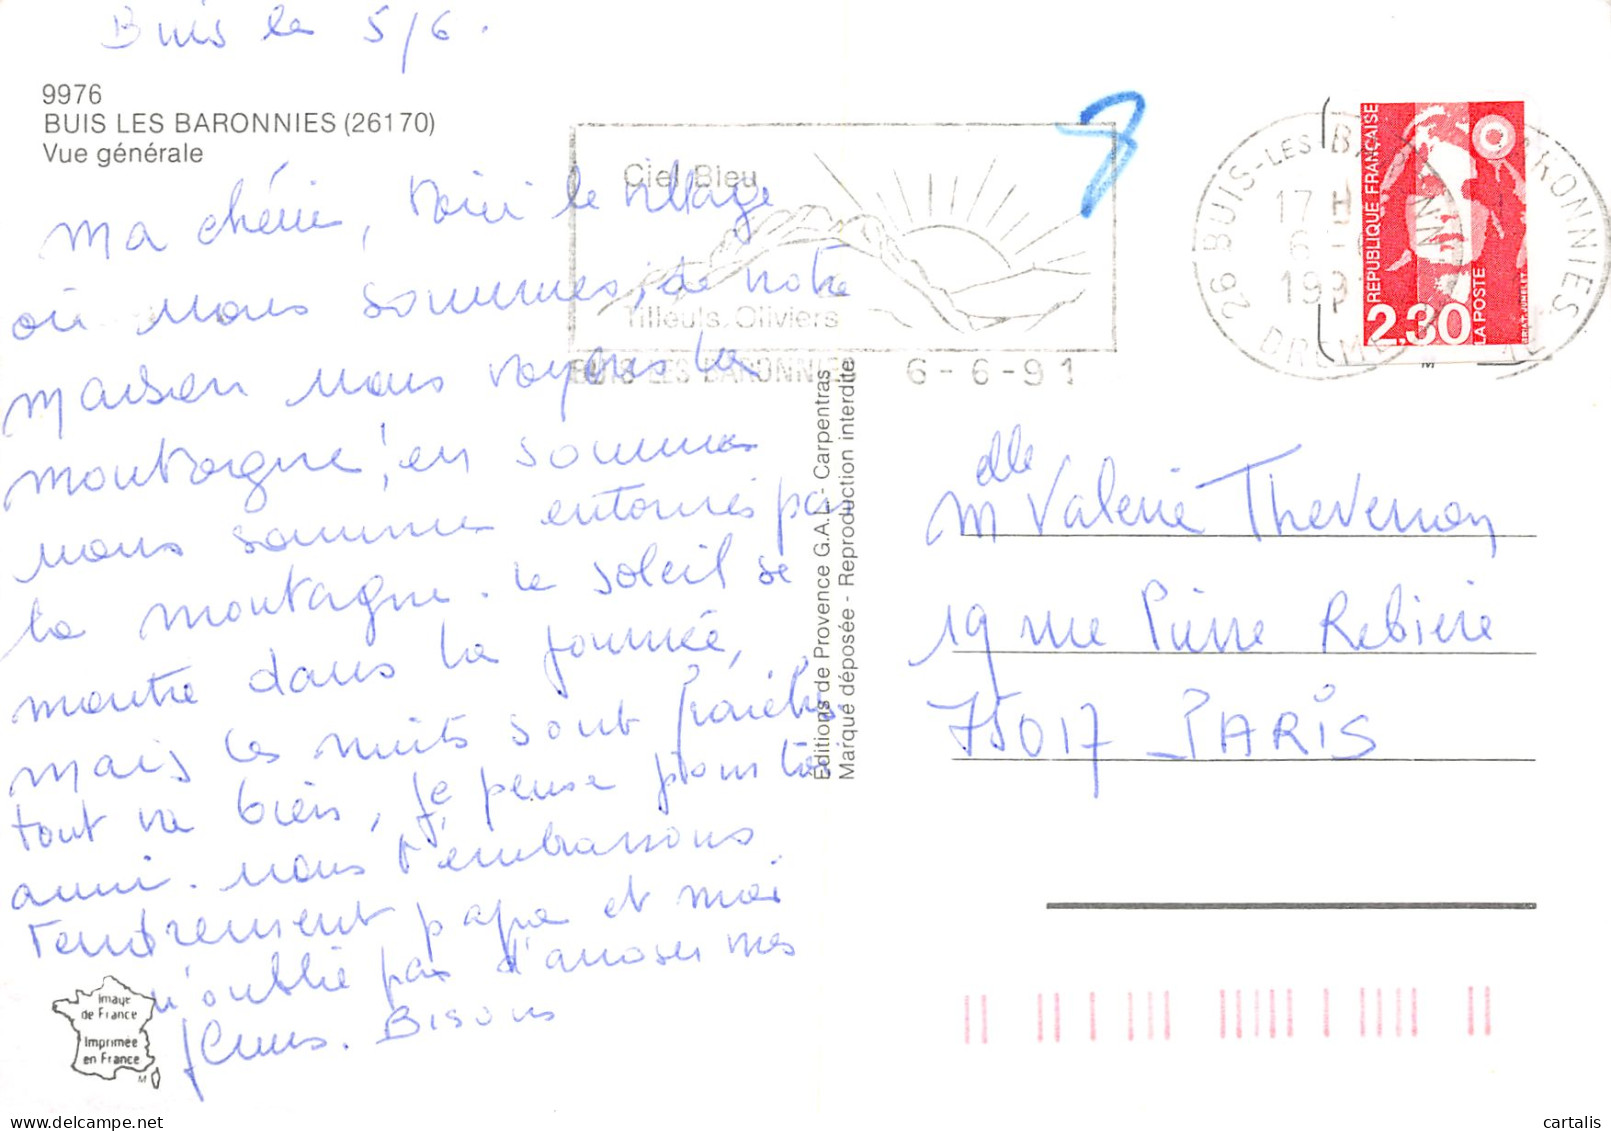 Buis le 5/6.
9976
BUIS LES BARONNIES (26170)
Vue générale
Ma chérie, Voici le village
où nous sommes, de notre
maison nous voyons la
montagne, en somme
nous sommes entourés par
la montagne. Le soleil se
montre dans la journée,
mais les nuits sont fraîches
tout va bien, je pense pour toi
aussi. Nous t'embrassons
tendrement papa et moi
n'oublie pas d'arroser mes
fleurs. Bisous
Ciel Bleu
Tilleuls. Oliviers
BUIS LES BARONNIES 6-6-91
26 BUIS-LES BARONNIES
17 H
6
199
DROME
REPUBLIQUE FRANÇAISE
LA POSTE
2,30
Editions de Provence G.A.L. - Carpentras
Marque déposée - Reproduction interdite
Mdlle Valerie Thevenon
19 rue Pierre Rebière
75017 PARIS
Image
de France
Imprimée
en France
M
cartalis
www.delcampe.net